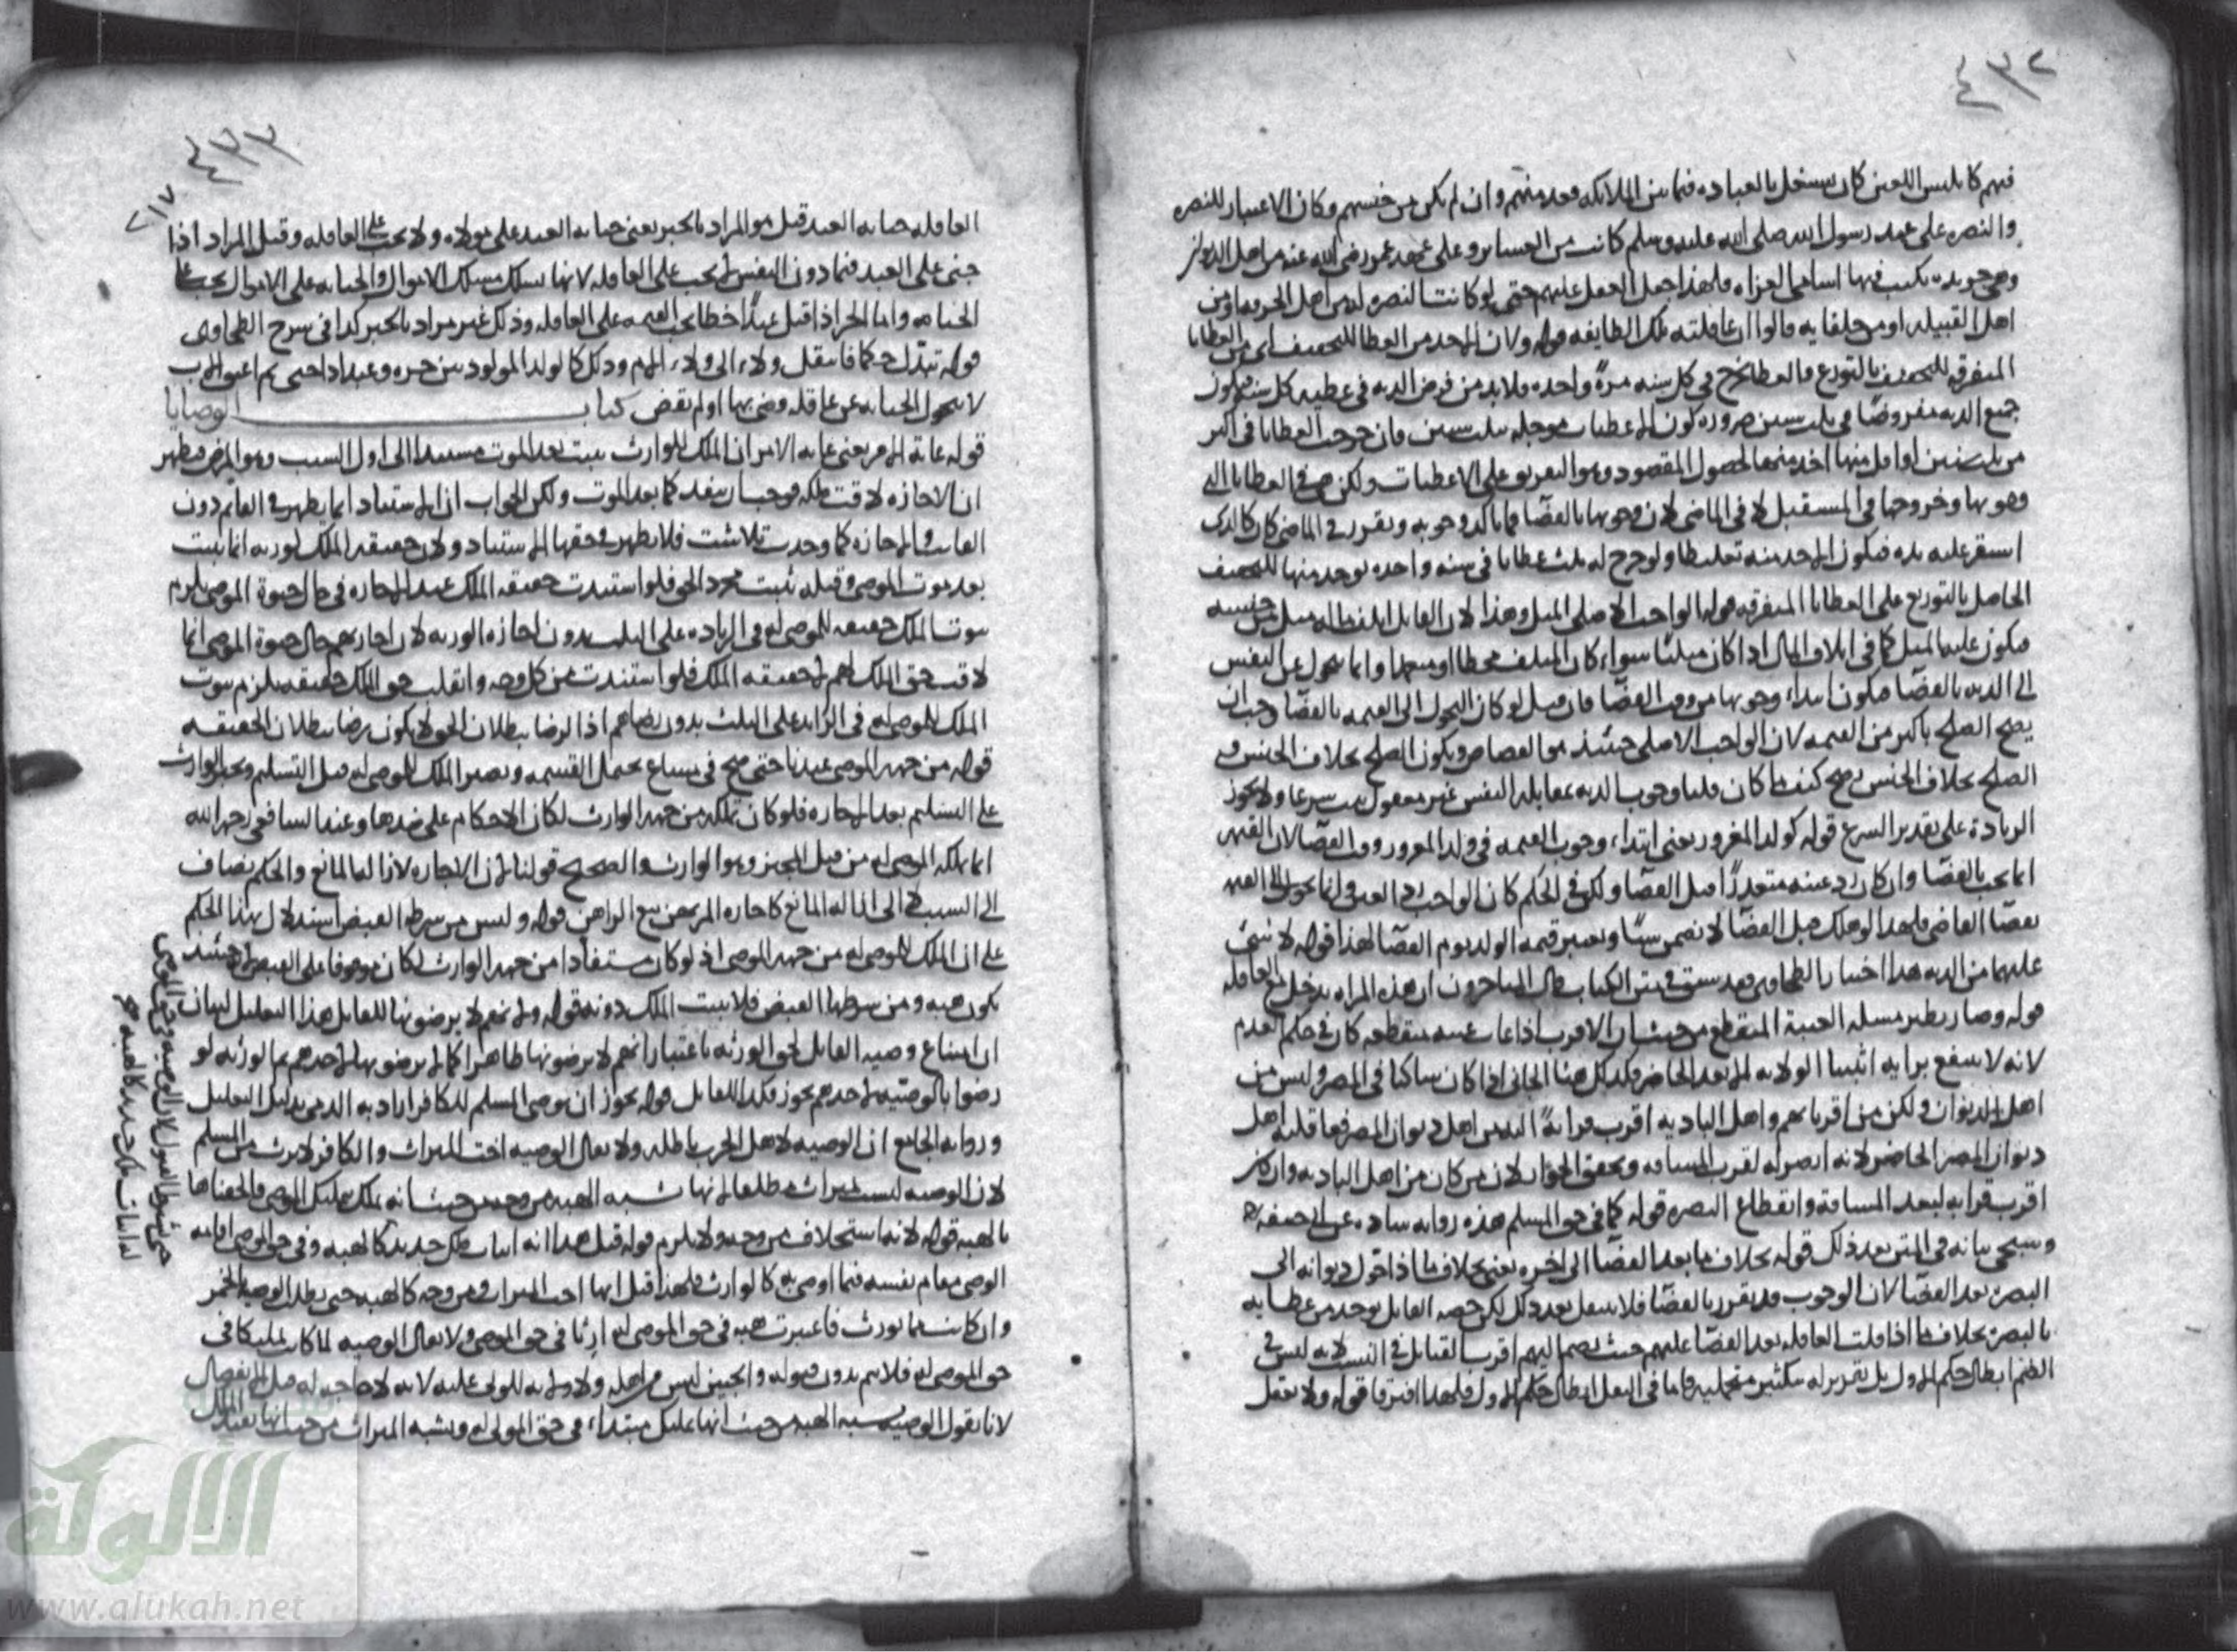 ٤٣٢
فهم كابليس اللعين كان يشتغل بالعباده فيما بين الملايكه فعد منهم وان لم يكن من جنسهم وكان الاعتبار للنصره
والنصره على عهد رسول الله صلى الله عليه وسلم كانت من العشاير وعلى عهد عمر رضى الله عنه من اهل الديوان
وهى جريده يكتب فيها اسامى الغزاه فلهذا جعل العقل عليهم حتى لو كانت النصره لهم من اهل الحرفه او من
اهل القبيله او من حلفايه قالوا ان عاقلته تلك الطايفه قوله ولان الاخذ من العطا للتخفيف اى من العطايا
المتفرقه للتخفيف بالتوزع والعطا يخرج فى كل سنه مرةً واحده فلا بد من فرض الديه فى عطيه كل سنه فيكون
جميع الديه مفروضًا فى ثلث سنين ضروره كون الاعطيات موجله بثلث سنين فان خرجت العطايا فى اكثر
من ثلث سنين او اقل منها اخذ منها لحصول المقصود وهو التفريق على الاعطيات ولكن هى فى العطايا التى
وجوبها وخروجها فى المستقبل لا فى الماضى لان وجوبها بالقضا فما تاكد وجوبه وتقرر فى الماضى كان كالدين
استقر عليه بده فيكون الاخذ منه تغليظا ولو خرج له ثلث عطايا فى سنه واحده يوخذ منها للتخفيف
الحاصل بالتوزيع على العطايا المتفرقه قوله الواجب الاصلى المثل وهذا لان القاتل اتلف ماله مثل من جنسه
فيكون عليه المثل كما فى اتلاف المال اذا كان مثليًا سواء كان المتلف مخطا او متعمدا وانما تحول عن النفس
الى الديه بالقضا فيكون ابتداء وجوبها من وقت القضا فان قيل لو كان التحول الى القيمه بالقضا وجب ان
يصح الصلح باكثر من القيمه لان الواجب الاصلى حينئذ هو القصاص ويكون الصلح بخلاف الجنس و
الصلح بخلاف الجنس يصح كيف ما كان قلنا وجوب الديه بمقابله النفس غير معقول ثبت شرعا ولا يجوز
الزيادة على تقدير الشرع قوله كولد المغرور يعنى ابتداء وجوب القيمه فى ولد المغرور وقت القضا لان القيمه
انما تجب بالقضا وان كان رد عينه متعذرًا قبل القضا ولكن فى الحكم كان الواجب رد العين وانما تحول الى القيمه
بقضا القاضى فلهذا لو هلك قبل القضا لا يضمن شيًا وتعتبر قيمه الولد يوم القضا لهذا قوله لا شئ
عليهما من الديه هذا اختيار الطحاوى وقد سبق فى متن الكتاب قال المتاخرون ان هذه المراه يدخل مع العاقله
قوله وصار نظير مسئله الغيبة المنقطع من حيث ان الاقرب اذا غاب غيبه منقطعه كان فى حكم العدم
لانه لا ينتفع برايه اثبتنا الولايه للابعد الحاضر فكذلك هنا الجانى اذا كان ساكنا فى المصر وليس من
اهل الديوان ولكن من اقربايهم واهل الباديه اقرب قرابةً اليه من اهل ديوان المصر فعاقلته اهل
ديوان المصر الحاضر لانه انصر له لقرب المسافه ويحقق الجوار لان من كان من اهل الباديه وان كان
اقرب قرابه لبعد المسافة وانقطاع النصره قوله كما فى حق المسلم هذه روايه شاذه عن ابى حنيفه رح
وسيجى بيانه فى المتن بعد ذلك قوله بخلاف ما بعد القضا الى اخره يعنى بخلاف ما اذا تحول ديوانه الى
البصره بعد القضا لان الوجوب قد تقرر بالقضا فلا ينتقل بعد ذلك لكن حصه القاتل يوخذ من عطايه
بالبصره بخلاف ما اذا قلت العاقله بعد القضا عليهم حيث يضم اليهم اقرب القبايل فى النسب لانه ليس فى
الضم ابطال حكم الاول بل تقرير له بتكثير متحمليه فاما فى النقل ابطال حكم الاول فلهذا افترقا قوله ولا تعقل
٤٣٣
٢١٧
العاقله جنايه العبد قيل هو المراد بالخبر يعنى جنايه العبد على مولاه ولا يجب على العاقله وقيل المراد اذا
جنى على العبد فيما دون النفس لا يجب على العاقله لانها تسلك مسلك الاموال والجنايه على الاموال يجب على
الجانى واما الحر اذا قتل عبدًا خطا يجب القيمه على العاقله وذلك غير مراد بالخبر كذا فى شرح الطحاوى
قوله تبدل حكما فانتقل ولاءه الى ولاء الام وذلك كالولد المولود بين حره وعبد اذا جنى ثم اعتق الاب
لا يتحول الجنايه عن عاقله قضى بها او لم يقض كتاب الوصايا
قوله غاية الامر يعنى غايه الامر ان الملك للوارث يثبت بعد الموت مستندا الى اول السبب وهو المرض فيظهر
ان الاجازه لاقت ملكه فوجب ان ينفد كما بعد الموت ولكن الجواب ان الاستناد انما يظهر فى القايم دون
الفايت والاجازه كما وجدت تلاشت فلا يظهر فى حقها الاستناد ولان حقيقه الملك لورثه انما ثبت
بعد موت الموصى وقبله ثبت مجرد الحق فلو استندت حقيقه الملك عند الاجازه فى حال حيوة الموصى يلزم
ثبوت الملك حقيقه للموصى له فى الزياده على الثلث بدون اجازه الورثه لان اجازتهم حال حيوة الموصى انما
لاقت حق الملك لهم لا حقيقه الملك فلو استندت من كل وجه وانقلبت حق الملك حقيقه يلزم ثبوت
الملك للموصى له فى الزايد على الثلث بدون رضاهم اذ الرضا ببطلان الحق لا يكون رضا ببطلان الحقيقه
قوله من جهه الموصى عندنا حتى صح فى مشاع يحتمل القسمه ويصير الملك للموصى له قبل التسليم ويجبر الوارث
على التسليم بعد الاجازه فلو كان تملكه من جهه الوارث لكان الاحكام على ضدها وعند الشافعى رحمه الله
انما يملكه الموصى له من قبل المجيز وهو الوارث والصحيح قولنا لان الاجازه لازاله المانع والحكم يضاف
الى السبب لا الى ازاله المانع كاجازه المرتهن بيع الراهن قوله وليس من شرطه القبض استدلال بهذا الحكم
على ان الملك للموصى له من جهه الموصى اذ لو كان مستفادا من جهه الوارث لكان موقوفا على القبض اذ حينئذ
يكون هبه ومن شرطها القبض فلا يثبت الملك دونه قوله ولانهم لا يرضونها للقاتل هذا التعليل لبيان
ان امتناع وصيه القاتل لحق الورثه باعتبار انهم لا يرضونها ظاهرا كما لا يرضونها لاحدهم ثم الورثه لو
رضوا بالوصيه لاحدهم يجوز فكذا للقاتل قوله يجوز ان يوصى المسلم للكافر اراد به الذمى بدليل التعليل
وروايه الجامع ان الوصيه لاهل الحرب باطله ولا يقال الوصيه اخت الميراث والكافر لا يرث من المسلم
لان الوصيه ليست بميراث مطلقا لانها شبه الهبه من وجه من حيث انه تملك بتمليك الموصى فالحقناها
بالهبه قوله لانه استخلاف من وجه ولا يلزم قوله قبل هذا انه اثبات ملك جديد كالهبه وفى حق الموصى اقامه
الموصى مقام نفسه فيما اوصى به كالوارث فلهذا قيل انها اخت الميراث ومن وجه كالهبه حتى بطلت الوصيه بالخمر
وان كانت مما يورث فاعتبرت هبه فى حق الموصى له ارثا فى حق الموصى ولا يقال الوصيه لما كانت تمليكا فى
حق الموصى له فلا يتم بدون قبوله والجنين ليس من اهله ولا ولايه للولى عليه لانه لا حاجه له قبل الانفصال
لانا نقول الوصيه شبه الهبه من حيث انها تمليك مبتداء فى حق الموصى له وشبه الميراث من حيث انها بعقد المال
حتى شرط القبول لان الوصيه فى حق الموصى
له اثبات ملك جديد كالهبه
الألوكة
www.alukah.net